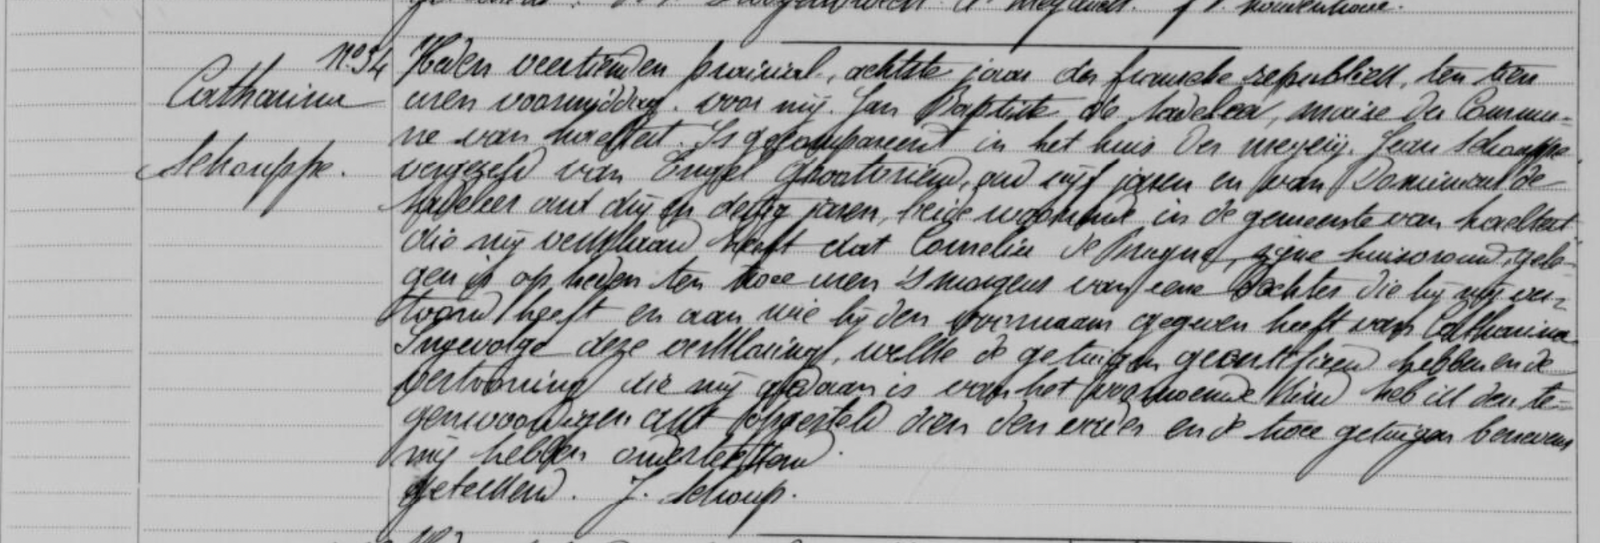 N° 34
Catharina
Schouppe.
Heden veertienden prairial, achtste jaar der fransche republiek, ten tien
uren voormiddag. voor mij. Jan Baptiste de Sadeleer, maire der Commu-
ne van haeltert. Is gecompareert in het huis der meyerij. Jean Schouppe.
vergezeld van Engel oud vijf jaren en van de
Sadeleer oud drij en dertig jaren, beide woonende in de gemeente van haeltert
die mij verklaard heeft dat Cornelia de Bruyne, zijne huisvrouw, gele-
gen is op heden ten twee uren 's morgens van eene dochter die hij mij ver-
toond heeft en aan wie hij den voornaam gegeven heeft van Catharina
Ingevolge deze verklaring, welke de getuigen gecertifieerd hebben en de
vertooning die mij gedaan is van het voornoemde kind heb ik den te-
genwoordigen akt opgesteld dien den vader en de twee getuigen benevens
mij hebben onderteekend.
geteekend. J. Schoup.